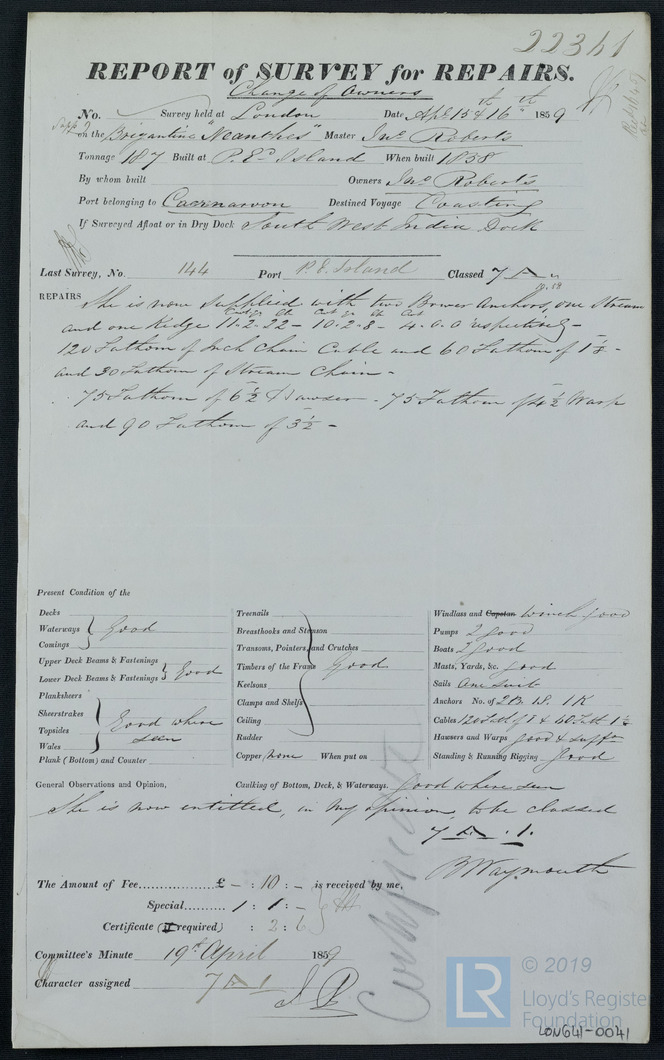 22341
REPORT of SURVEY for REPAIRS.
Change of Owners
No. Survey held at London Date Apl 15th & 16th 1859
on the Brigantine "Neanthes" Master Jno. Roberts
Tonnage 187 Built at P. Ed. Island When built 1858
By whom built Owners Jno. Roberts
Port belonging to Caernarvon Destined Voyage Coasting
If Surveyed Afloat or in Dry Dock South West India Dock
Last Survey, No. 144 Port P. E. Island Classed 7 A
10.58
REPAIRS She is now supplied with two Bower Anchors, one Stream
and one Kedge 11-2-22 - 10-2-8 - 4.0.0 respectively -
120 Fathom of Inch Chain Cable and 60 Fathom of 1 1/8 -
and 30 Fathom of Stream Chain -
75 Fathom of 6 1/2 Hawser - 75 Fathom of 4 1/2 Warp
and 90 Fathom of 3 1/2 -
Present Condition of the
Decks
Waterways Good
Comings
Upper Deck Beams & Fastenings
Lower Deck Beams & Fastenings Good
Planksheers
Sheerstrakes Good where
Topsides seen
Wales
Plank (Bottom) and Counter
Treenails
Breasthooks and Stemson
Transoms, Pointers, and Crutches
Timbers of the Frame Good
Keelsons
Clamps and Shelfs
Ceiling
Rudder
Copper None When put on
Windlass and Capstan Winch good
Pumps 2 good
Boats 2 good
Masts, Yards, &c. good
Sails One suit
Anchors No. of 2 B. 1 S. 1 K
Cables 120 Fath of 1 & 60 Fath 1 1/8
Hawsers and Warps good & sufft
Standing & Running Rigging Good
General Observations and Opinion, Caulking of Bottom, Deck, & Waterways. Good where seen
She is now entitled, in my opinion, to be classed
7 A . 1.
B Waymouth
The Amount of Fee £ - : 10 : - is received by me,
Special 1 : 1 : -
Certificate (If required) : 2 : 6
Committee's Minute 19th April 1859
Character assigned 7 A 1
LR © 2019
Lloyd's Register
Foundation
LON641-0041